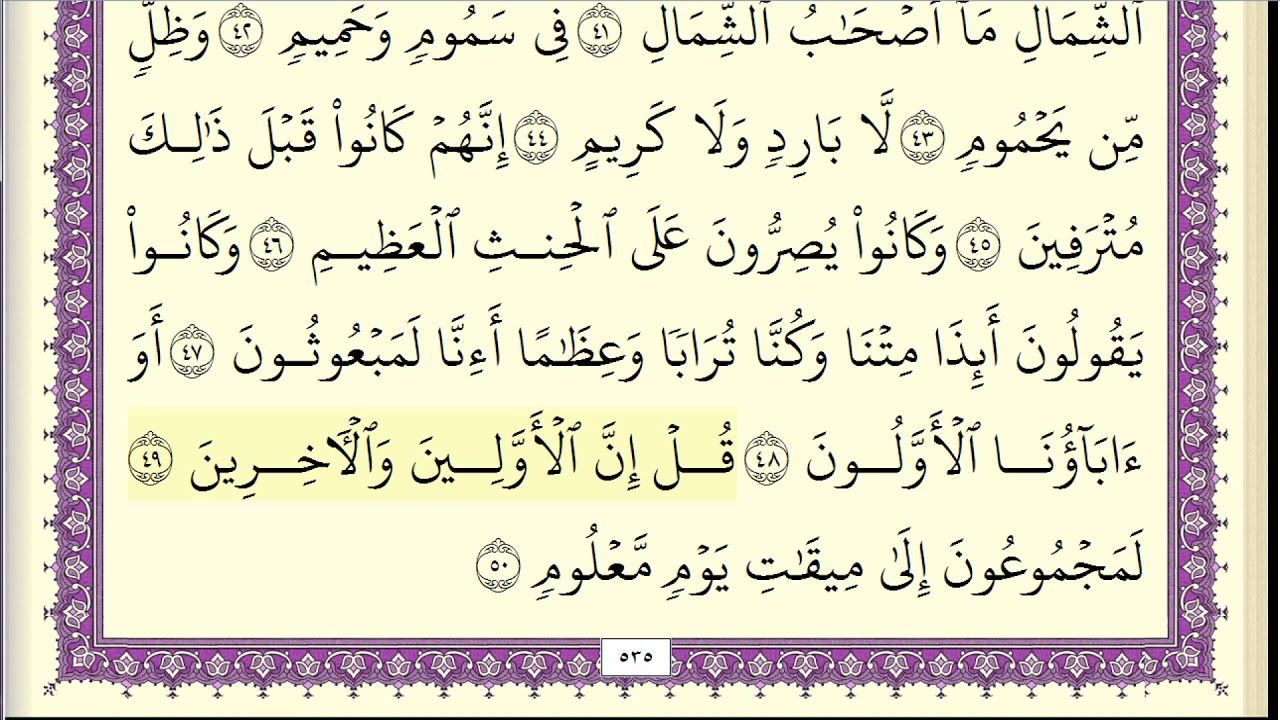 ٱلشِّمَالِ مَآ أَصْحَٰبُ ٱلشِّمَالِ ٤١ فِى سَمُومٍ وَحَمِيمٍ ٤٢ وَظِلٍّ
مِّن يَحْمُومٍ ٤٣ لَّا بَارِدٍ وَلَا كَرِيمٍ ٤٤ إِنَّهُمْ كَانُوا۟ قَبْلَ ذَٰلِكَ
مُتْرَفِينَ ٤٥ وَكَانُوا۟ يُصِرُّونَ عَلَى ٱلْحِنثِ ٱلْعَظِيمِ ٤٦ وَكَانُوا۟
يَقُولُونَ أَئِذَا مِتْنَا وَكُنَّا تُرَابًا وَعِظَٰمًا أَءِنَّا لَمَبْعُوثُونَ ٤٧ أَوَ
ءَابَآؤُنَا ٱلْأَوَّلُونَ ٤٨ قُلْ إِنَّ ٱلْأَوَّلِينَ وَٱلْـَٔاخِرِينَ ٤٩
لَمَجْمُوعُونَ إِلَىٰ مِيقَٰتِ يَوْمٍ مَّعْلُومٍ ٥٠
٥٣٥